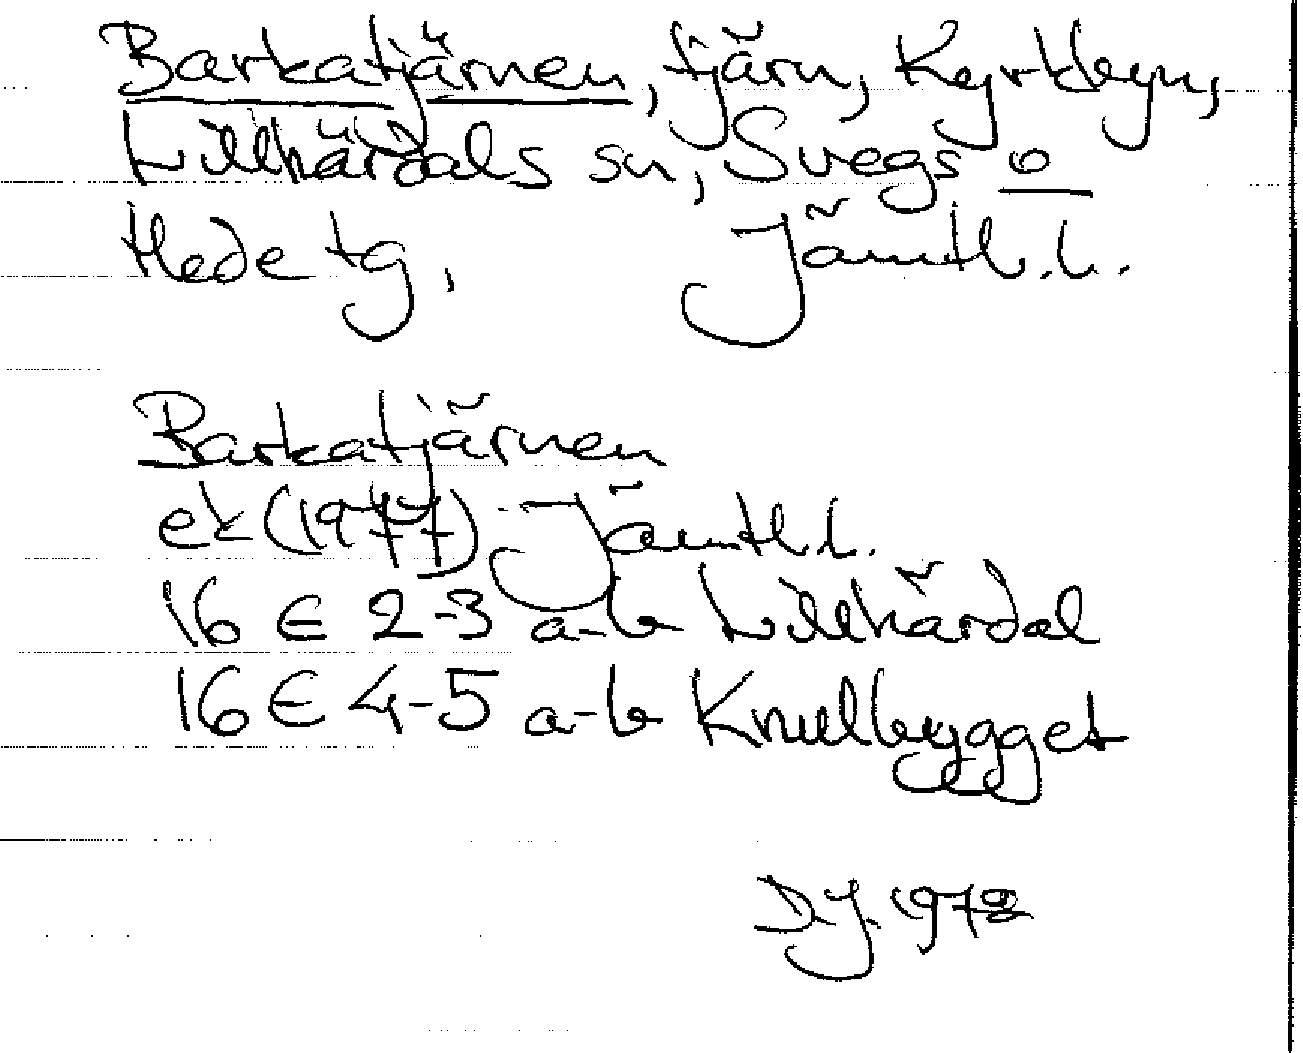 Barkatjärnen, tjärn, Kyrkbyn,
Lillhärdals sn, Svegs o
Hede tg, Jämtl.l.
Barkatjärnen
ek (1977) Jämtl.l.
16 E 2-3 a-b Lillhärdal
16 E 4-5 a-b Knullbygget
D.J. 1978